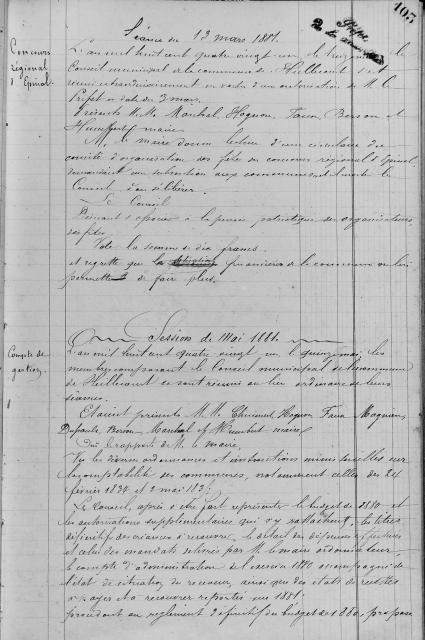 103
Séance du 13 mars 1881.
Concours
régional
d'Epinal
L'an mil huit cent quatre vingt un le treize le
Conseil municipal de la commune de s'est
réuni extraordinairement en vertu d'une autorisation de M. le
Préfet en date du 3 mars.
Présents M.M. Marchal, Hognon, Faron, Berson et
Humbert maire
M. le maire donne lecture d'une circulaire du
comité d'organisation des fêtes du concours régional d'Epinal,
demandant une subvention aux communes et invite le
Conseil à en délibérer.
Le Conseil
Désirant s'associer à la pensée patriotique des organisateurs
des fêtes
Vote la somme de dix francs.
et regrette que la financière de la commune ne lui
permette de faire plus.
Session de Mai 1881.
Compte de
gestion
L'an mil huit cent quatre vingt un le quinze mai, les
membres composant le Conseil municipal de la commune
de se sont réunis au lieu ordinaire de leurs
séances.
Etaient présents M.M. Hognon
Berson, Marchal et Humbert maire
Ouï le rapport de M. le maire
Vu les diverses ordonnances et instructions ministérielles sur
la comptabilité des communes, notamment celles des 24
février 183 et 2 mai 183
Le Conseil, après s'être fait représenter le budget de 1880 et
les autorisations supplémentaires qui s'y rattachent, les titres
définitifs des créances à recouvrer, le détail des dépenses effectuées
et celui des mandats délivrés par M. le maire ordonnateur,
le compte d'administration de l'exercice 1880 accompagné de
l'état de situation du receveur, ainsi que des états de restes
à payer et à recouvrer reportés en 1881.
procédant au règlement définitif du budget de 1880, propose